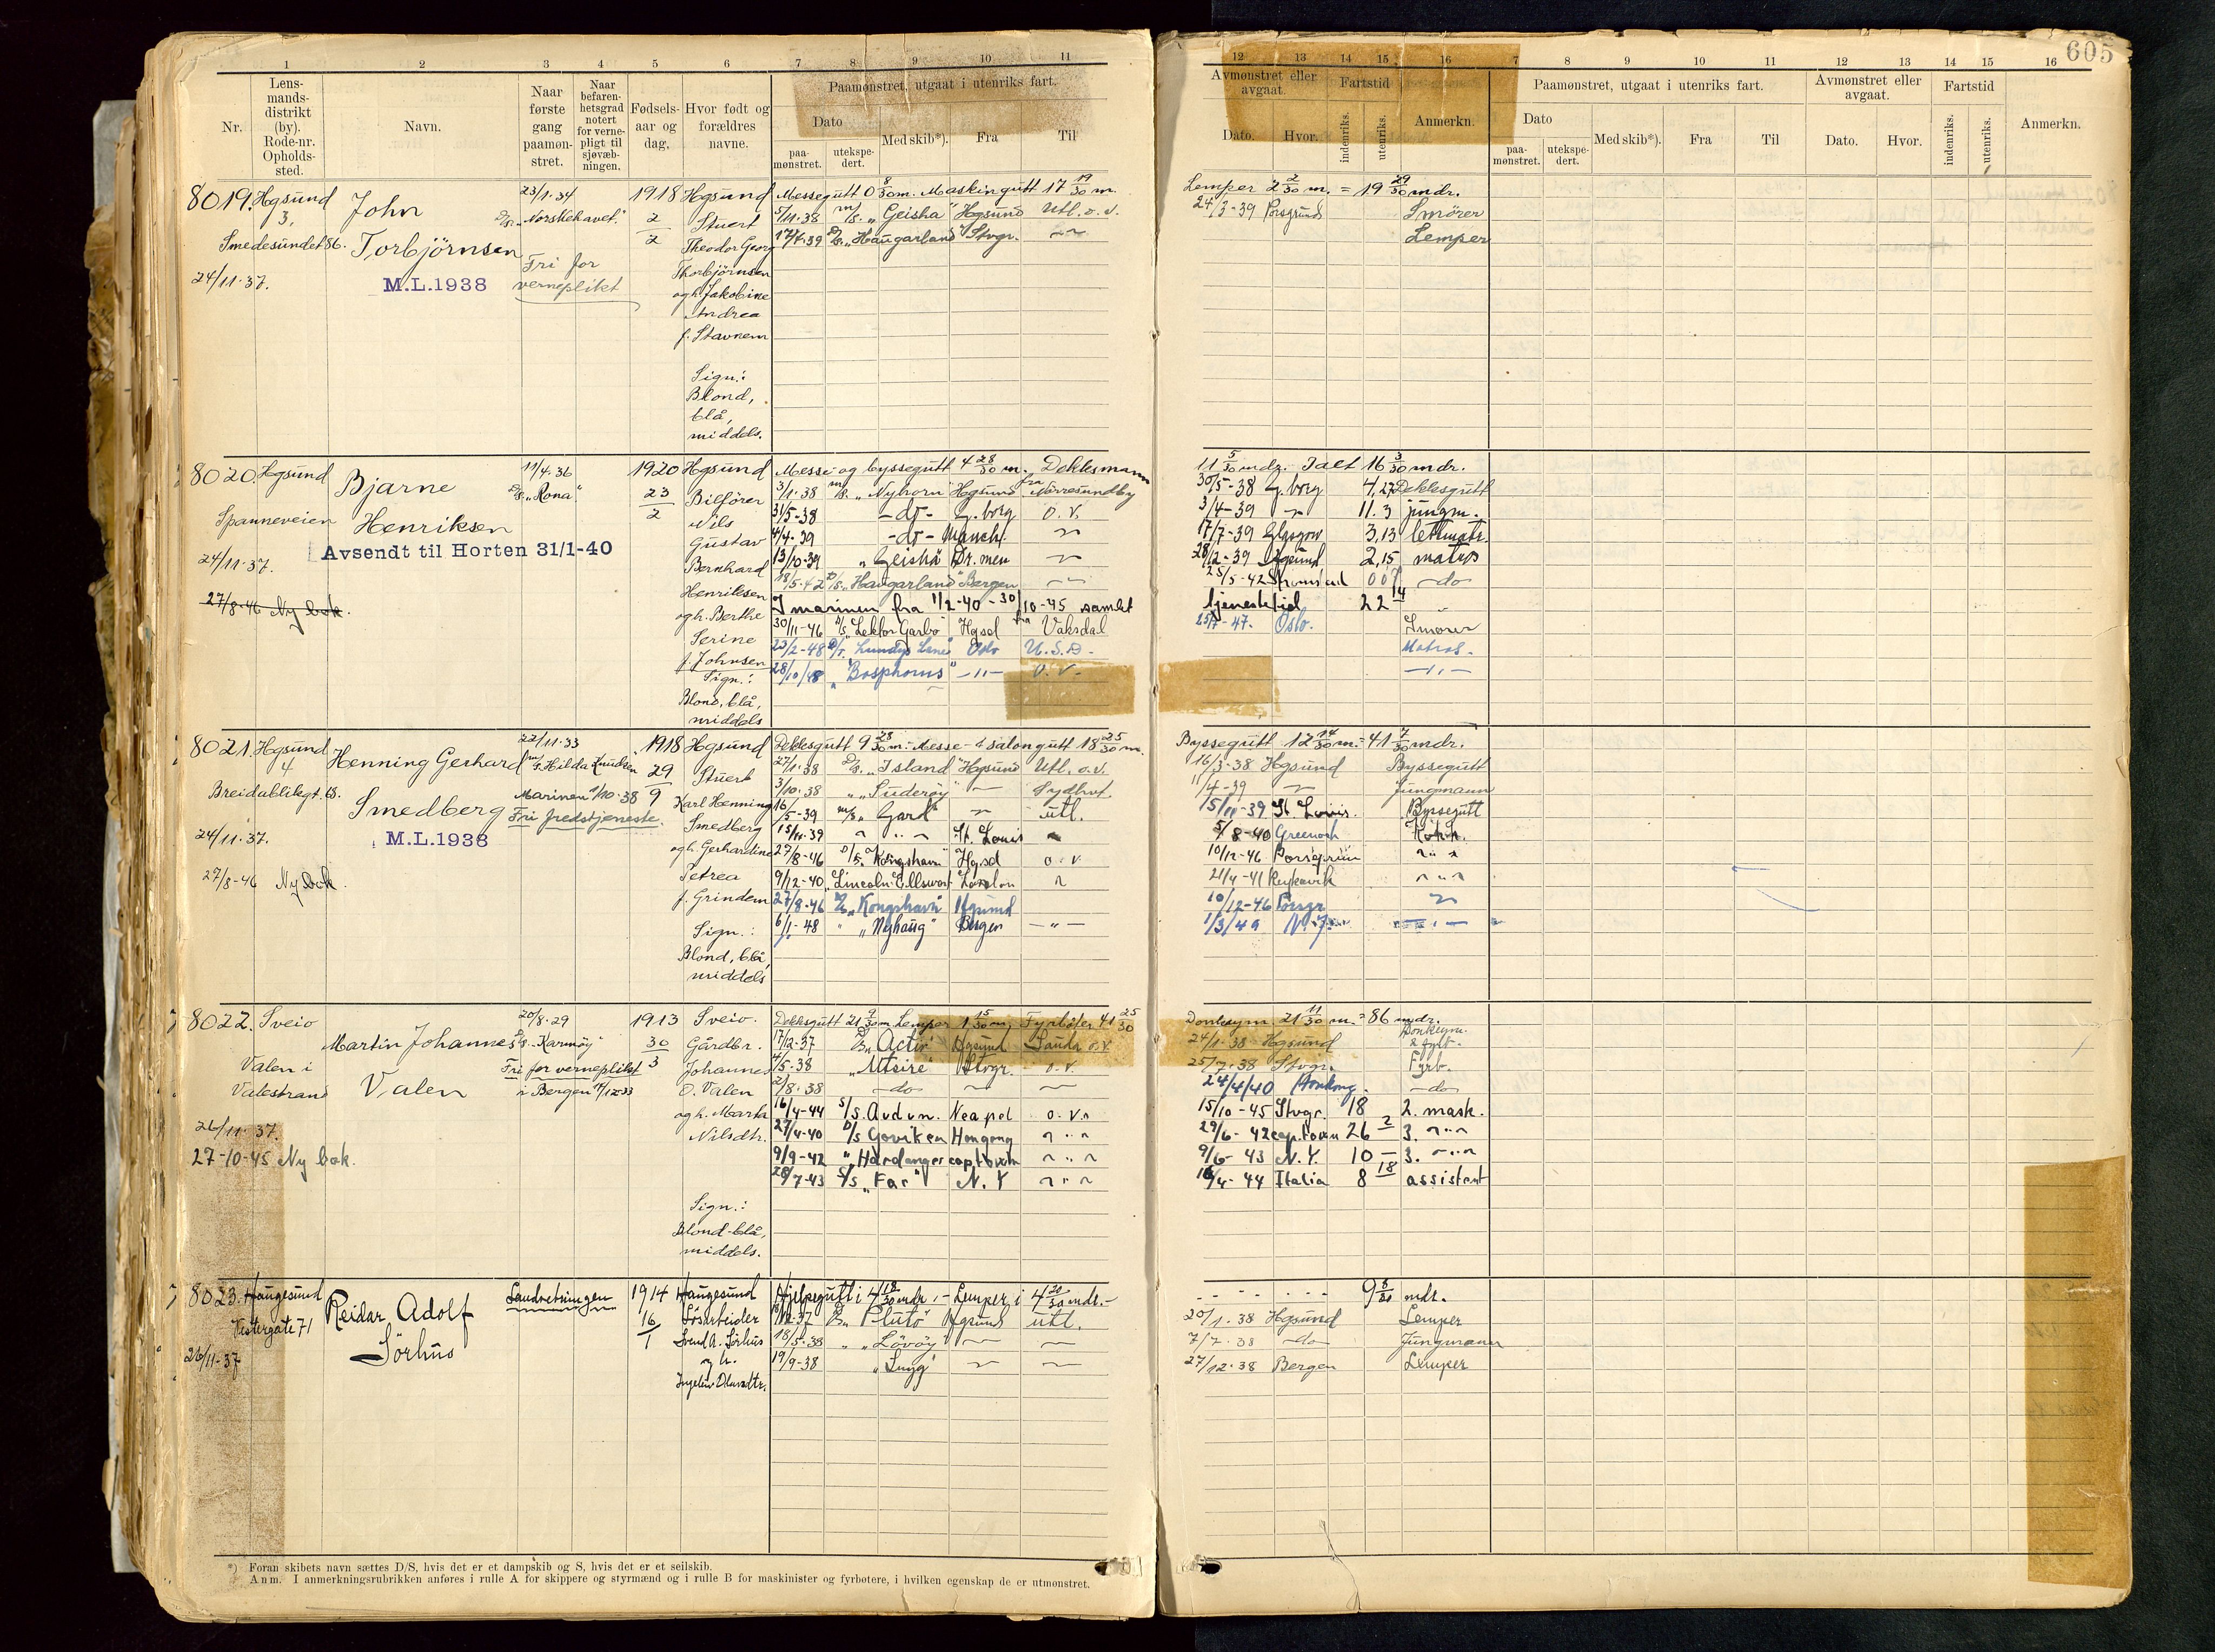 605
1 2 3 4 5 6 7 8 9 10 11
12 13 14 15 16 7 8 9 10 11 12 13 14 15 16
Nr.
Lens-
mands-
distrikt
(by).
Rode-nr.
Opholds-
sted.
Navn.
Naar
første
gang
paamøn-
stret.
Naar
befaren-
hetsgrad
notert
for verne-
pligt til
sjøvæb-
ningen.
Fødsels-
aar og
dag.
Hvor født og
forældres
navne.
Paamønstret, utgaat i utenriks fart.
Dato
paa-
mønstret.
utekspe-
dert.
Med skib*).
Fra
Til
Avmønstret eller
avgaat.
Dato.
Hvor.
Fartstid
indenriks.
utenriks.
Anmerkn.
Paamønstret, utgaat i utenriks fart.
Dato
paa-
mønstret.
utekspe-
dert.
Med skib*).
Fra
Til
Avmønstret eller
avgaat.
Dato.
Hvor.
Fartstid
indenriks.
utenriks.
Anmerkn.
8019. Hgsund
3,
Smedesundet 86.
24/11-37.
John
Torbjörnsen
M.L.1938
23/1-34
D/S. „Norskehavet."
Fri for
verneplikt
1918
2
2
Hgsund
Stuert
Theodor Georg
Thorbjörnsen
og h. Jakobine
Andrea
f. Stavnem
Sign.:
Blond,
blå,
middels.
Messegutt 0 8/30 m. Maskingutt 17 19/30 m.
5/11-38 m/s. „Geisha" Hgsund Utl. o. v.
17/4-39 D/S. „Haugarland" Stvgr.
Lemper 2 2/30 m. = 19 29/30 mdr.
24/3-39 Porsgrund Smörer
Lemper
8020. Hgsund
Spanneveien
24/11-37.
27/8-46 Ny bok.
Bjarne
Henriksen
Avsendt til Horten 31/1-40
11/4-36
D/S. „Rona"
1920
23
2
Hgsund
Bilförer
Nils
Gustav
Bernhard
Henriksen
og h. Berthe
Serine
f. Johnsen
Sign.:
Blond, blå,
middels
Messe- og byssegutt 4 28/30 m. Dekksmann
3/1-38 m/s. „Nyhorn" Hgsund fra Nörresundby
31/5-38 -do- G.borg o. v.
4/4-39 -do- Manch.
13/10-39 „Geisha" Dr.men
18/5-42 D/S. „Haugarland" Bergen
I marinen fra 1/2-40 - 30/10-45 samlet
30/11-46 D/S. „Lektor Garbo" Hgsd fra Vaksdal
23/2-48 Lundys Lane Oslo U.S.A.
28/10/48 „Bosphorus" -"- O.V.
11 5/30 mdr. Ialt 16 3/30 mdr.
30/5-38 G.borg 4,27 Dekksgutt
3/4-39 11.3 jungm.
17/7-39 Glasgow 3,13 lettmatr.
28/12-39 Hgsund 2,15 matros
25/5-42 do
tjenestetid 22 14
25/7-47. Oslo. Smörer
Matros.
-"-
8021. Hgsund
4
Breidablikgt.
24/11-37.
27/8-46 Ny bok.
Henning Gerhard
Smedberg
M.L.1938
22/11-33
m/s Hilda Knudsen
Marinen 1/10-38
Fri fredstjeneste.
1918
29
9
Hgsund
Stuert
Karl Henning
Smedberg
og h. Gerhardine
Petrea
f. Grindem
Sign.:
Blond, blå,
middels
Dekksgutt 9 28/30 m. Messe- & salongutt 18 25/30 m.
27/1-38 D/S. „Island" Hgsund Utl. o.v.
3/10-38 „Suderöy" Sydhvt.
16/5-39 m/s „Gard" utl.
15/11-39 St. Louis
27/8-46 D/S. „Kongshavn" Hgsd o. v
9/12-40 „Lincoln Ellsworth" London
27/8-46 „Kongshavn" Hgsund
6/1-48 „Nyhaug" Bergen -"-
Byssegutt 12 14/30 m. = 41 7/30 mdr.
16/3-38 Hgsund Byssegutt
1/4-39 Jungmann
15/11-39 St. Louis. Byssegutt
5/8-40 Greenock Kokk.
10/12-46 Porsgrunn
21/4-41 Reykavik
10/12-46 Porsgr.
1/3/49 N.Y.
8022. Sveio
Valen i
Valestrand
26/11-37.
27-10-45 Ny bok.
Martin Johannes
Valen
20/8-29
D/S. „Karmøy"
Fri for verneplikt
i Bergen 1/12-33
1913
30
3
Sveio.
Gårdbr.
Johannes
O. Valen
og h. Marta
Nilsdtr.
Sign.:
Blond-blå,
middels.
Dekksgutt 21 7/30 m. Lemper 1 15/30 m. Fyrböter 41 25/30
17/12-37 D/S. „Activ" Hgsund Sauda o.v.
4/5-38 „Utsire" Stvgr. o. v.
2/8-38 do
16/4-44 S/S. Audun. Neapel o. v.
27/4-40 D/S Goviken Hongong
9/9-42 „Hardanger captown
28/7-43 S/S „Far" N. Y
Donkeym. 21 11/30 m. = 86 mdr.
24/1-38 Hgsund Donkeym. & fyrb.
25/7-38 Stvgr. Fyrb.
24/4/40 Honkong. do
15/10-45 Stvgr. 18 2. mask.
29/6-42 cap.town 26 2 3.
9/6-43 N.Y. 10 - 3.
16/4-44 Italia 8 18 assistent
8023. Haugesund
Vestergate 71
26/11-37
Reidar Adolf
Sörhus
Landvetningen
1914
16
1
Haugesund
Lösarbeider
Svend A. Sörhus
og h.
Ingeleiv Olavsdtr.
Hjelpegutt i 4 18/30 mdr. - Lemper i 4 20/30 mdr.-
D/S. „Pluto" Hgsund utl.
18/5-38 „Lövöy"
19/9-38 „Snygg"
9 8/30 mdr.
20/1-38 Hgsund Lemper
7/7-38 do Jungmann
27/12-38 Bergen Lemper
*) Foran skibets navn sættes D/S, hvis det er et dampskib og S, hvis det er et seilskib.
Anm. I anmerkningsrubrikken anføres i rulle A for skippere og styrmænd og i rulle B for maskinister og fyrbøtere, i hvilken egenskap de er utmønstret.